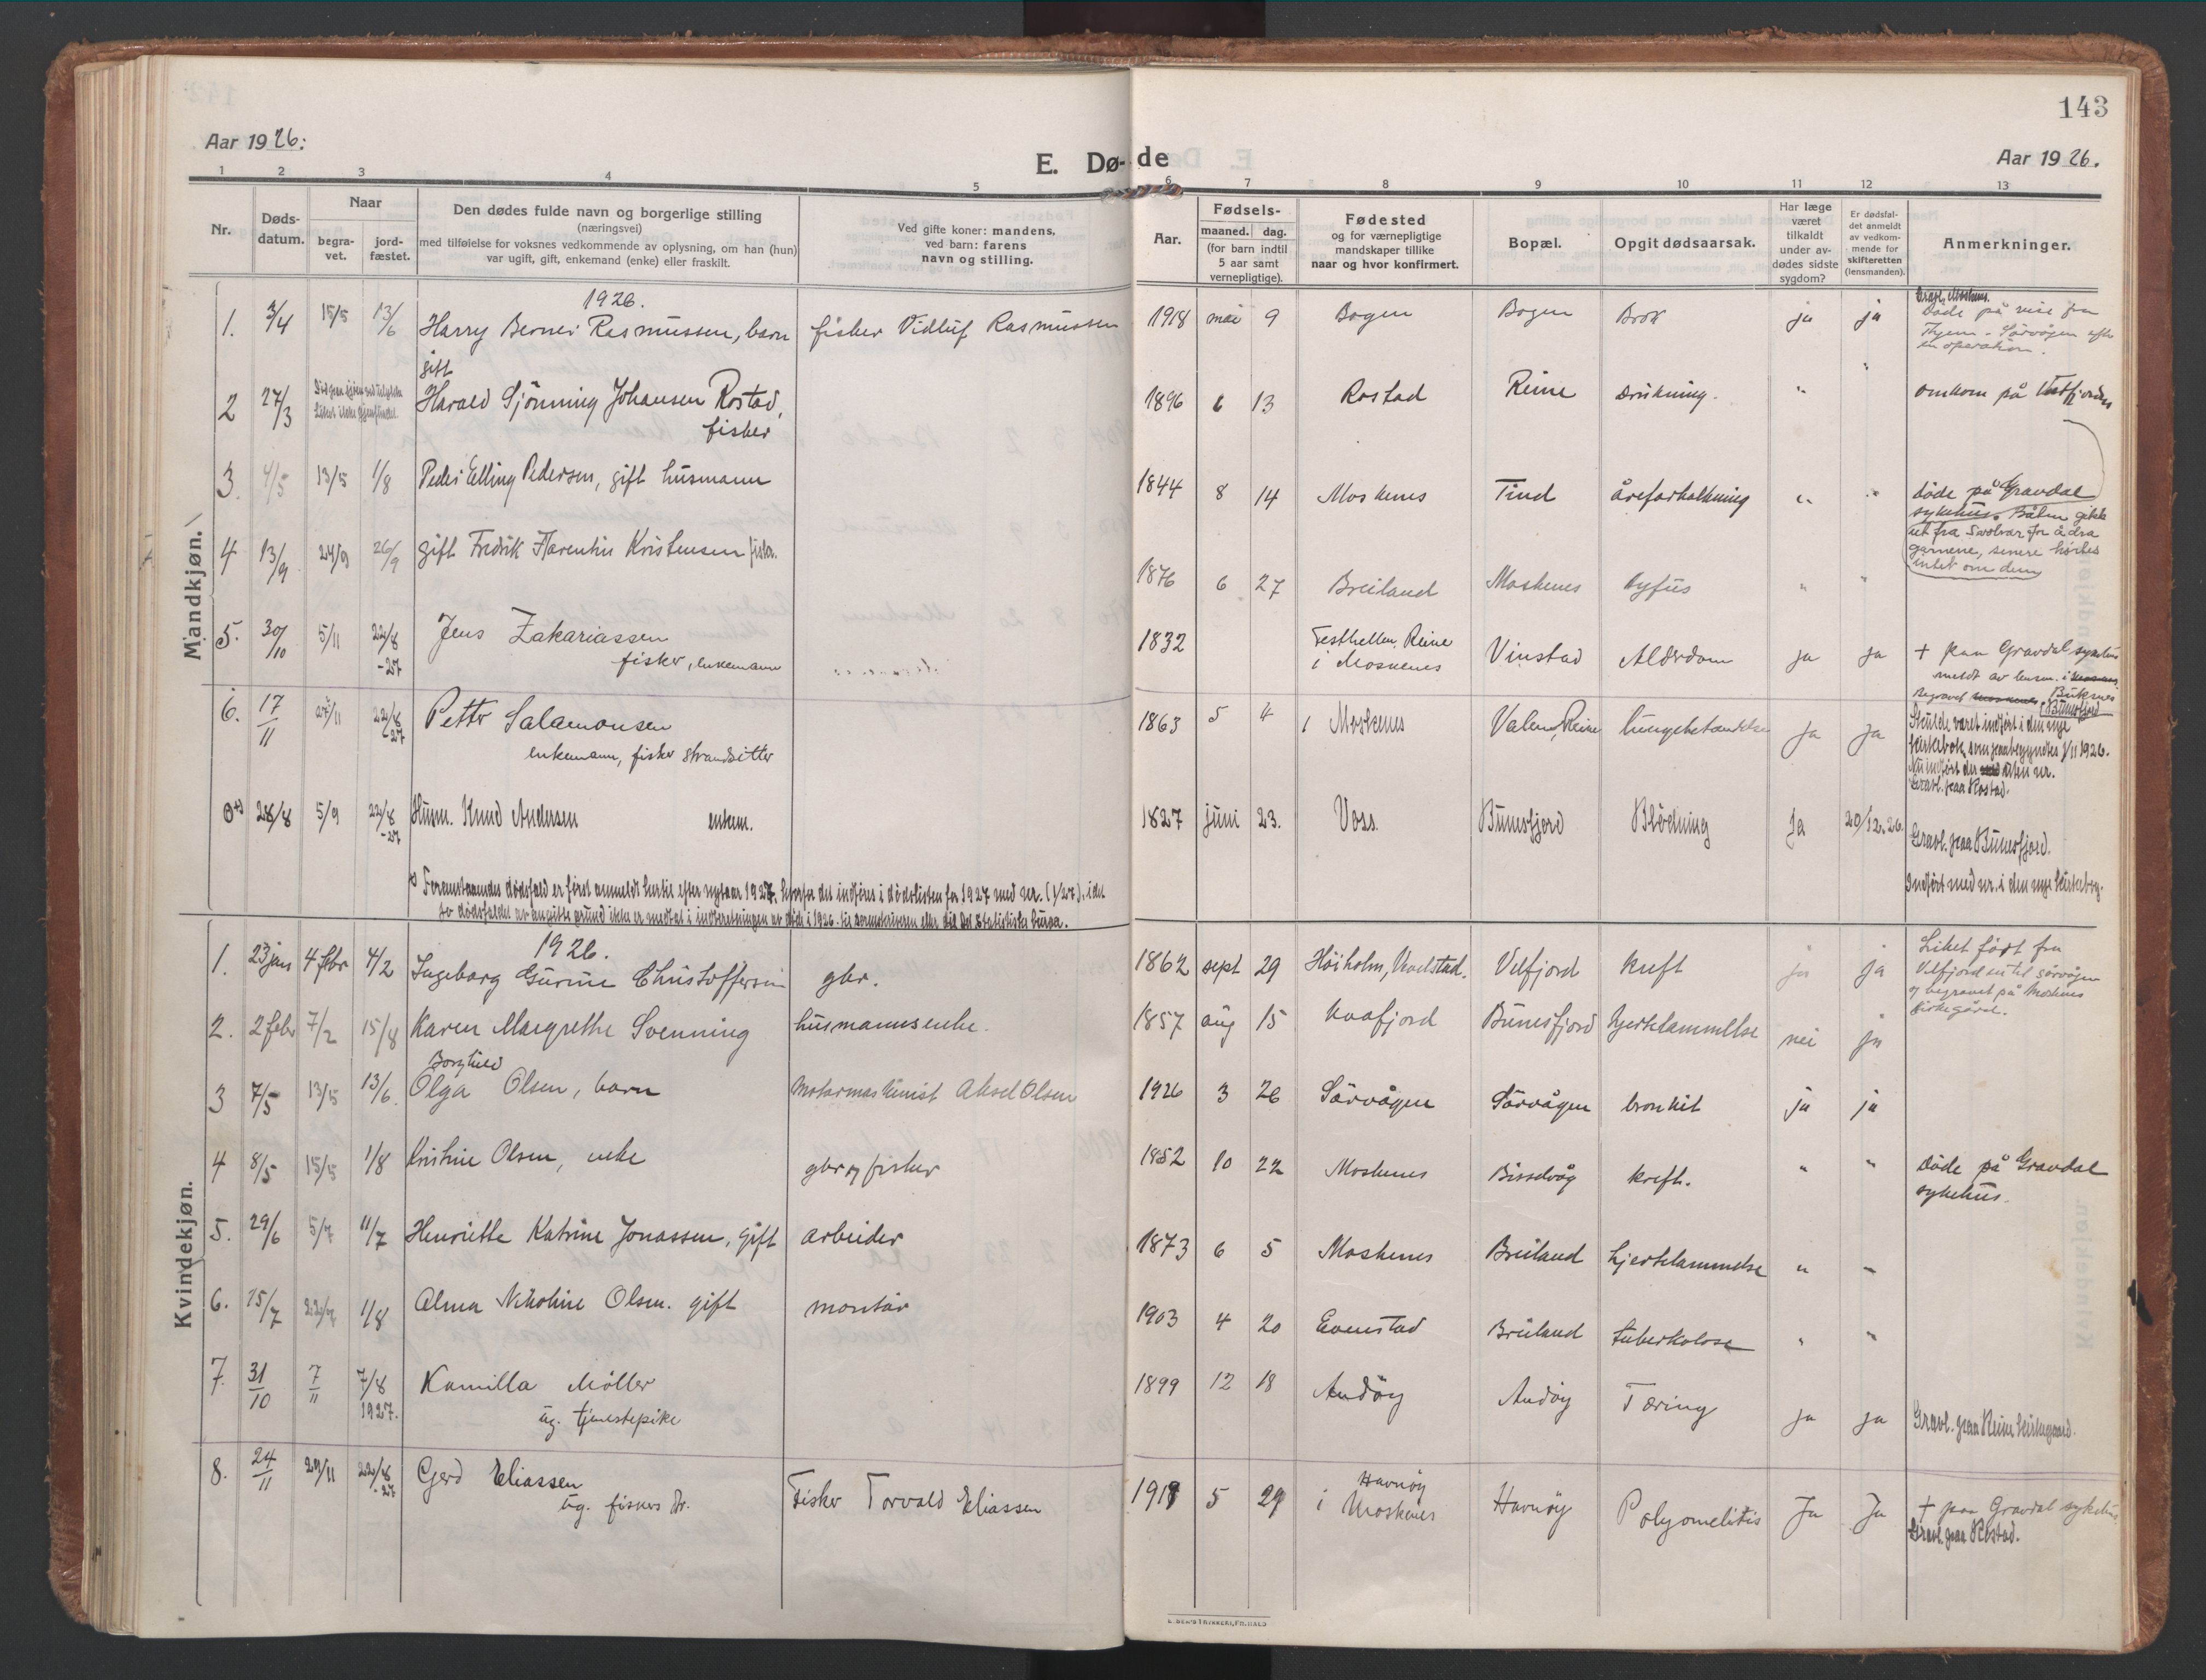 143
Aar 1926:
E. Dø-de
Aar 1926.
1 2 3 4 5 6 7 8 9 10 11 12 13
Nr.
Døds-
datum.
Naar
begra-
vet.
jord-
fæstet.
Den dødes fulde navn og borgerlige stilling
(næringsvei)
med tilføielse for voksnes vedkommende av oplysning, om han (hun)
var ugift, gift, enkemand (enke) eller fraskilt.
Ved gifte koner: mandens,
ved barn: farens
navn og stilling.
Aar.
Fødsels-
maaned. dag.
(for barn indtil
5 aar samt
vernepligtige).
Fødested
og for værnepligtige
mandskaper tillike
naar og hvor konfirmert.
Bopæl.
Opgit dødsaarsak.
Har læge
været
tilkaldt
under av-
dødes sidste
sygdom?
Er dødsfal-
det anmeldt
av vedkom-
mende for
skifteretten
(lensmanden).
Anmerkninger.
Mandkjøn.
1926.
1. 3/4 15/5 13/6 Harry Berner Rasmussen, barn fisker Vidluf Rasmussen 1918 mai 9 Bogen Bogen Brok ja ja
Gravl. Moskenes.
Døde på reise fra
- Sørvågen efter
en operation.
gift
2 27/3 Harald Sjønning Johansen Rostad, 1896 6 13 Rostad Reine Drukning. " " omkom på Vestfjorden
fisker
3. 4/5 13/5 1/8 Peder Elling Pedersen, gift husmann 1844 8 14 Moskenes Tind åreforkalkning " " døde på Gravdal
sykehus. Båten gikk
ut fra Svolvær for å dra
garnene, senere hørtes
intet om dem
4 13/9 24/9 26/9 gift Fredrik Florentin Kristensen fisker. 1876 6 27 Breiland Moskenes tyfus " "
5. 30/10 5/11 22/8 -27 Jens Zakariassen 1832 Festhellen, Reine Vinstad Alderdom ja ja + paa Gravdal sykehus
fisker, enkemann i Moskenes
meldt av lensm. i
Buksnes
begravet Moskenes, Bunesfjord
6. 17/11 27/11 22/8 -27 Petter Salamonsen 1863 5 4 i Moskenes Valen, Reine lungebetændelse Ja Ja
enkemann, fisker strandsitter
Skulde været indført i den nye
kirkebok, som paabegyndtes 1/11 1926.
Nu indført der uten nr.
Gravl. paa Rostad.
0 *) 28/8 5/9 22/8 -27 Husm. Knud Andersen enkem. 1827 juni 23. Voss. Bunesfjord Blødning Ja 20/12. 26. Gravl. paa Bunesfjord.
Indført med nr. i den nye kirkebog.
*) Foranstaaende dødsfald er først anmeldt hertil efter nytaar 1927, hvorfor det indføres i dødslisten for 1927 med nr. (1/27), idet
for dødsfaldet av angitte grund ikke er medtat i indberetningen av døde i 1926 til sorenskriveren eller det statistiske byraa.
Kvindekjøn.
1926.
1. 23 jan 4 febr 4/2 Ingeborg Gurine Christoffersen gbr. 1862 sept 29 Høiholm, Vevelstad. Velfjord kreft ja ja
Liket ført fra
Velfjord ut til Sørvågen
og begravet på Moskenes
kirkegård.
2. 2 febr 7/2 15/8 Karen Margrethe Svenning husmannsenke. 1857 aug 15 Kvafjord Bunesfjord hjertelammelse nei ja
Borghild
3 7/5 13/5 13/6. Olga Olsen, barn Motormaskinist Aksel Olsen 1926 3 26 Sørvågen Sørvågen bronkit ja ja
4 8/5 15/5 1/8 Kristine Olsen, enke gbr og fisker 1852 10 22 Moskenes Bissevåg kreft. " " døde på Gravdal
sykehus.
5. 29/6 5/7 11/7 Henriette Katrine Jonassen, gift arbeider 1873 6 5 Moskenes Breiland hjertelammelse " "
6. 15/7 22/7 1/8 Alma Nikoline Olsen. gift montør 1903 4 20 Evenstad Breiland tuberkulose " "
7. 31/10 7/11 7/8 1927. Kamilla Møller 1899 12 18 Andøy Andøy Tæring ja ja Gravl. paa Reine kirkegaard.
ug. tjenestepike
8. 24/11 29/11 22/8 -27 Gerd Eliassen Fisker Torvald Eliassen 1919 5 29 i Havnøy Moskenes Havnøy Polyomelitis Ja Ja + paa Gravdal sykehus
ug. fiskers dr. Gravl. paa Rostad.